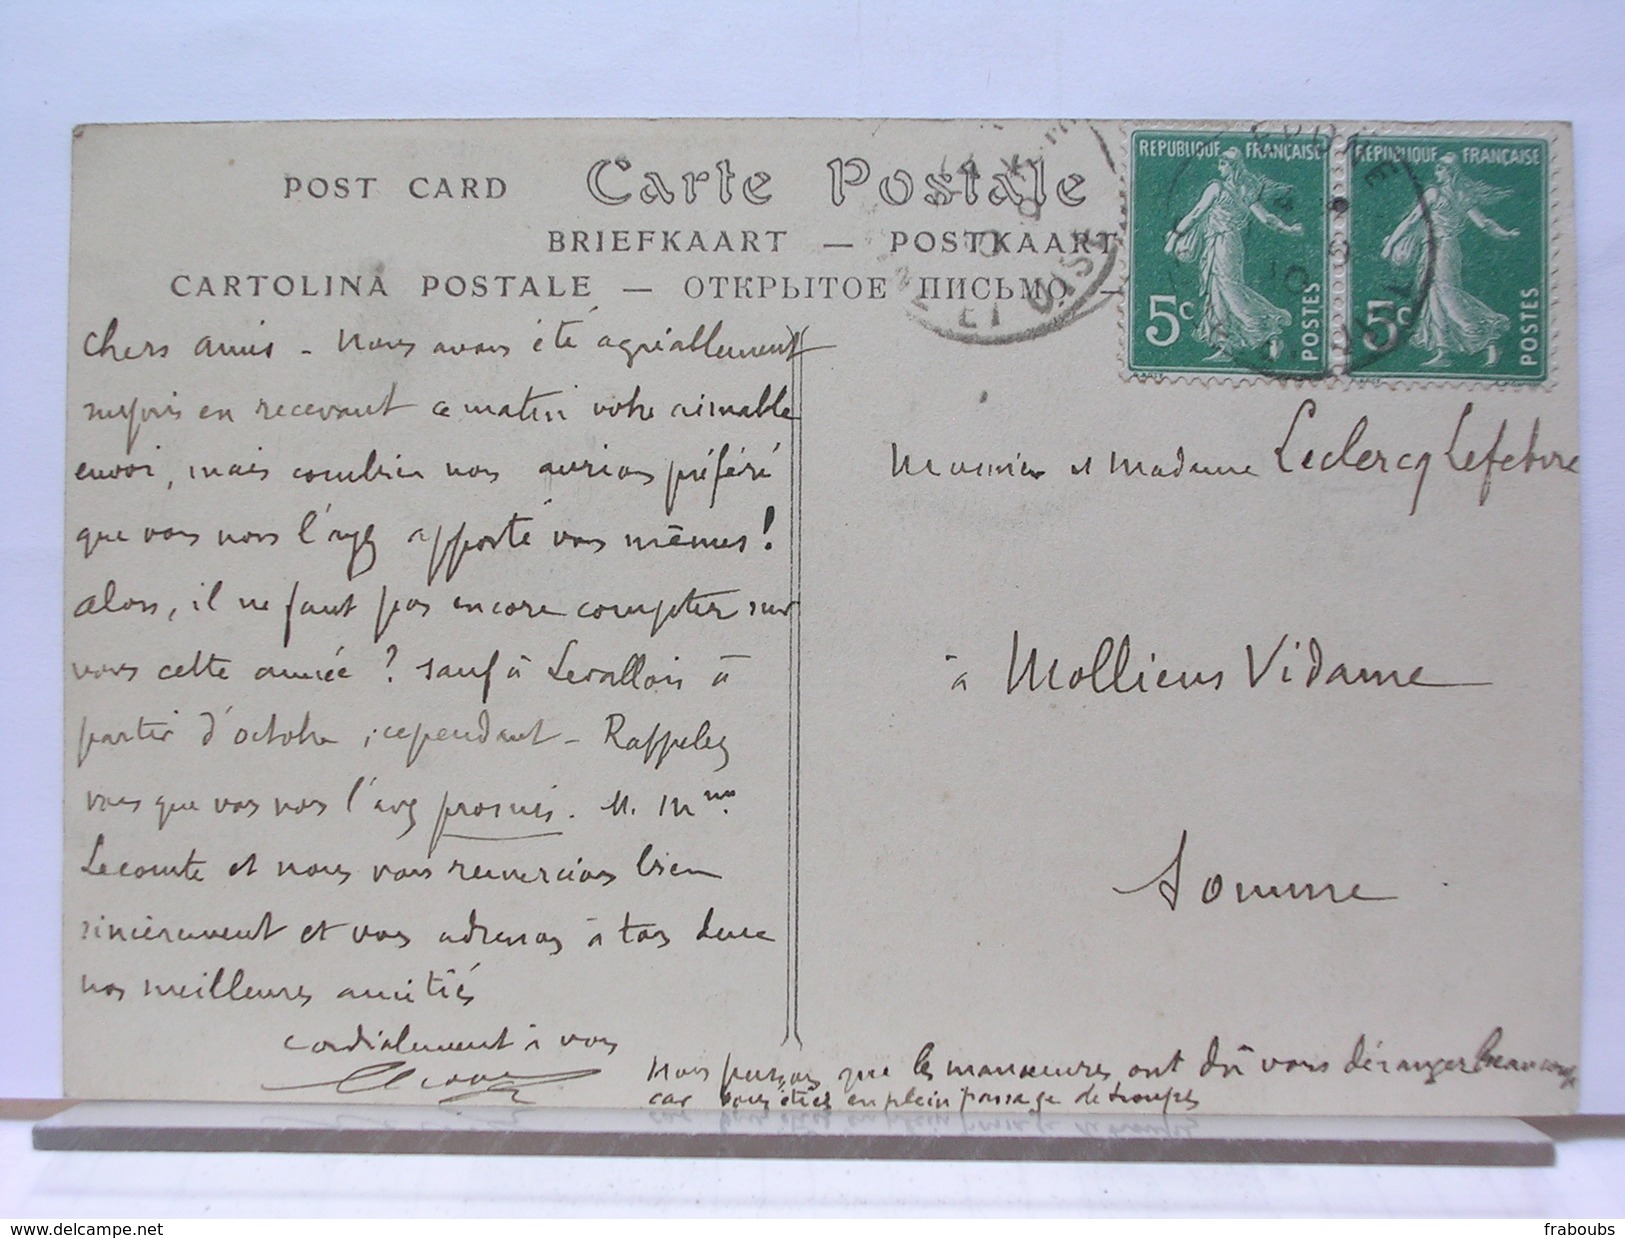 POST CARD Carte Postale
BRIEFKAART — POSTKAART
CARTOLINA POSTALE — ОТКРЫТОЕ ПИСЬМО —
REPUBLIQUE FRANÇAISE
5c POSTES
REPUBLIQUE FRANÇAISE
5c POSTES
ET OISE
chers amis - Nous avons été agréablement
surpris en recevant ce matin votre aimable
envoi, mais combien nous aurions préféré
que vous nous l'ayez apporté vous mêmes !
Alors, il ne faut pas encore compter sur
vous cette année ? sauf à Levallois à
partir d'octobre, cependant - Rappelez
vous que vous nous l'avez promis. M. Mme
Lecomte et nous vous remercions bien
sincèrement et vous adressons à tous deux
nos meilleures amitiés
cordialement à vous
Monsieur et Madame Leclercq Lefebvre
à Molliens Vidame
Somme
Nous pensons que les manœuvres ont dû vous déranger beaucoup
car vous étiez en plein passage de troupes
delcampe.net
fraboubs